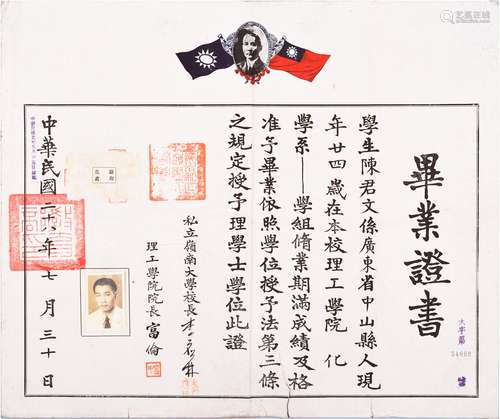 艺狐在线
畢業證書
大字第
號
學生陳君文係廣東省中山縣人現
年廿四歲在本校理工學院 化
學系——學組脩業期滿成績及格
准予畢業依照學位授予法第三條
之規定授予理學士學位此證
私立嶺南大學校長 李應林
理工學院院長 富倫
中華民國 年七月三十日